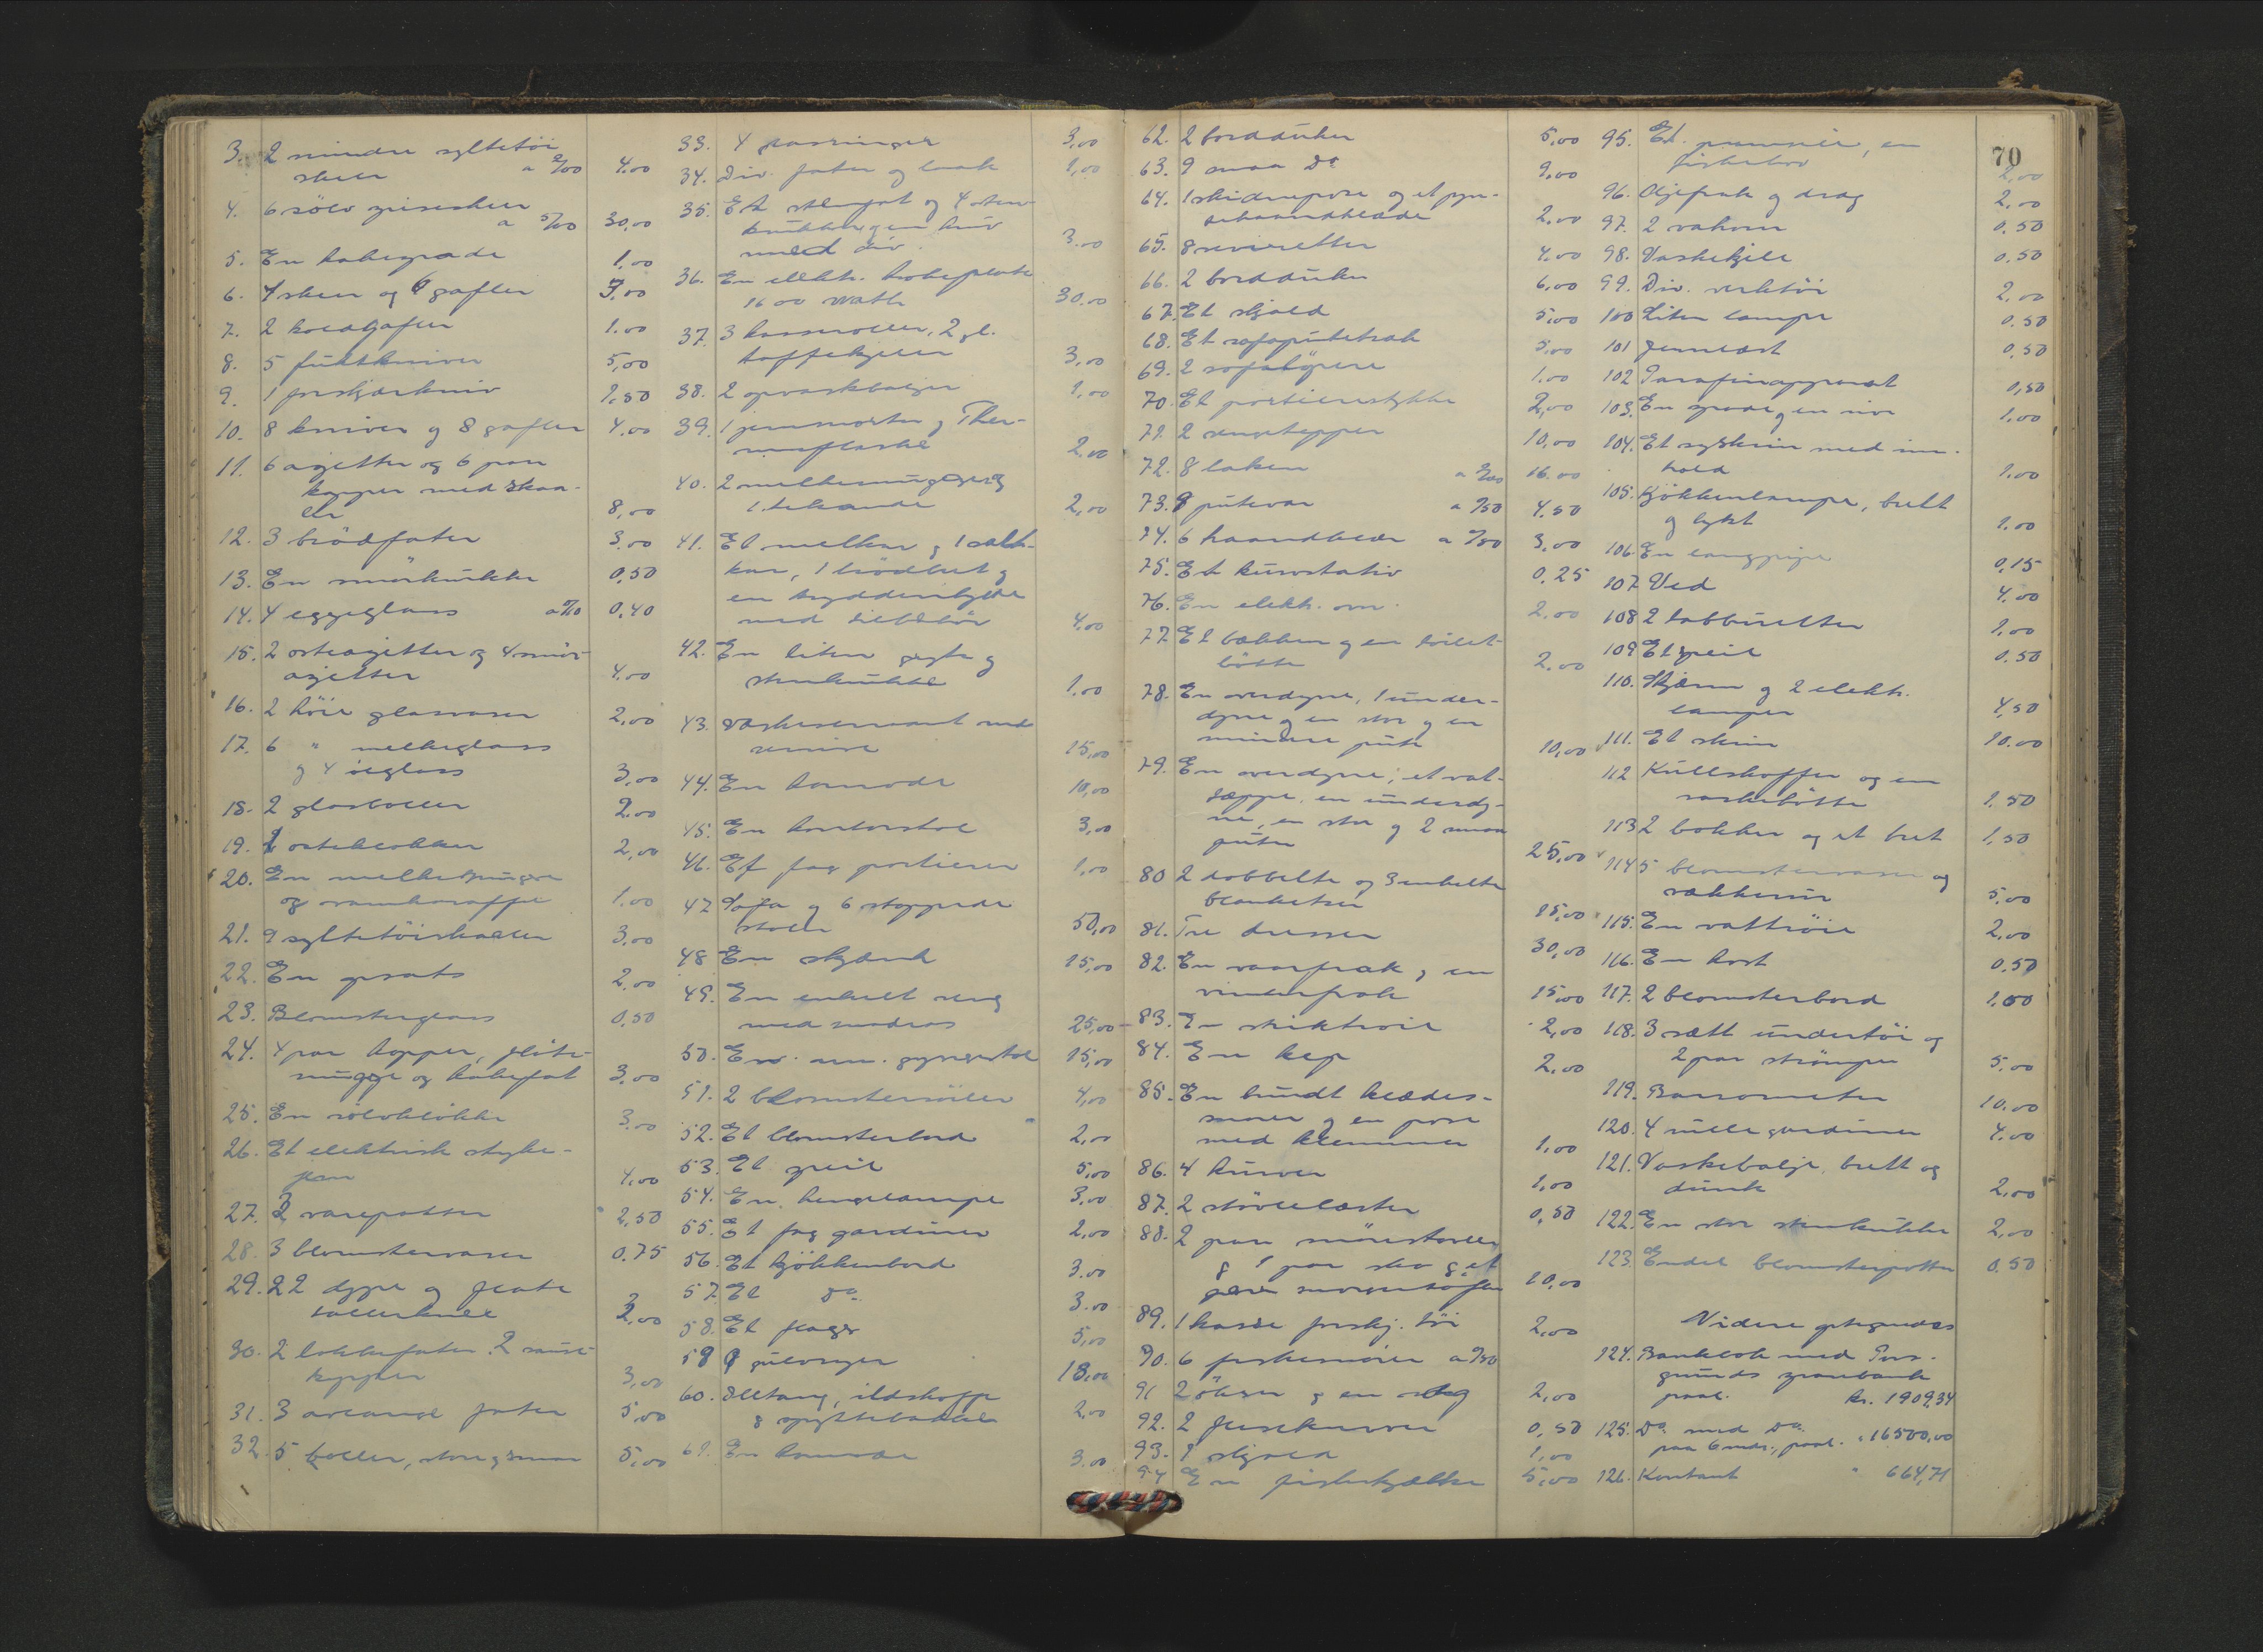 3. 2 mindre syltetöi
skeer a 2/00 4.00
4. 6 sölv spiseskeer
a 5/00 30,00
5. En kakespade 1,00
6. 7 skeer og 6 gafler 3,00
7. 2 koldgafler 1.00
8. 5 fruktkniver 5,00
9. 1 forskjærkniv 1,50
10. 8 kniver og 8 gafler 4,00
11. 6 asjetter og 6 par
kopper med skaa-
ler 8,00
12. 3 brödfater 3.00
13. En smörkrukke 0,50
14. 4 eggeglass a 0/10 0,40
15. 2 osteasjetter og 4 smör
asjetter 4.00
16. 2 höie glasvaser 2,00
17. 6 " melkeglass
og 4 ölglass 3,00
18. 2 glasboller 2.00
19. 2 osteklokker 2,00
20. En melkemugge
og vannkaraffe 1.00
21. 9 syltetöiskaaler 3,00
22. En opsats 2,00
23. Blomsterglass 0,50
24. 4 par kopper, flöte-
mugge og kakefat 3,00
25. En sölvklokke 3.00
26. Et elektrisk stryke-
jern 4,00
27. 3 vasepotter 2,50
28. 3 blomstervaser 0.75
29. 22 dype og flate
tallerkner 2,00
30. 2 lokkefater. 2 saus-
kopper 3,00
31. 3 avlange fater 5,00
32. 5 boller, store og smaa 5,00
33. 4 3,00
34. Div. fater og lok 1,00
35. Et stenfat og 4 sten-
krukker, en kurv
med div. 3.00
36. En elektr. kokeplate
1600 watt 30.00
37. 3 kasseroller, 2 gl.
kaffekjeler 3,00
38. 2 opvaskbaljer 1,00
39. 1 og Ther-
mosflaske 2,00
40. 2 melkemugger og
1 tekande 2,00
41. Et melkar, 1 salt-
kar, 1 brödbret og
en krydderihylde
med tilbehör 4,00
42. En liten gryte og
stenkrukke 1.00
43. Vaskeservant med
servise 15,00
44. En komode 10,00
45. En kontorstol 3,00
46. Et fag portierer 1,00
47. Sofa og 6 stoppede
stoler 50,00
48 En skjænk 15,00
49. En enkelt seng
med madras 25,00
50. En am. gyngestol 15,00
51. 2 blomstersöiler 4,00
52. Et blomsterbord 2,00
53. Et speil 5,00
54. En hengelampe 3,00
55. Et fag gardiner 2,00
56. Et kjökkenbord 3.00
57. Et Do 3.00
58. Et flagg 5,00
59 9 gulvryer 18,00
60. Ildtang, ildskuffe
& spyttebakke 2,00
61. En komode 3.00
62. 2 bordduker 5,00
63. 9 smaa Do 9,00
64. 1 skidenpose og et pyn-
tehaandklæde 2,00
65. 8 servietter 4,00
66. 2 bordduker 6,00
67. Et skjold 5,00
68. Et sofaputetræk 5,00
69. 2 sofalöpere 1.00
70. Et portierestykke 2,00
71. 2 sengetepper 10,00
72. 8 laken a 2/00 16.00
73. 9 putevar a 0/50 4.50
74. 6 haandklær a 0/50 3,00
75. Et kurvstativ 0,25
76. En elektr. ovn 2.00
77. Et bækken og en toilet-
bötte 2.00
78. En overdyne, 1 under-
dyne og en stor og en
mindre pute 10,00
79. En overdyne, et vat-
tæppe, en underdy-
ne, en stor og 2 smaa
puter 25,00
80 2 dobbelte og 3 enkelte
blanketter 15,00
81. Tre dresser 30,00
82. En vaarfrak, en
vinterfrak 15,00
83. En striktröie 2,00
84. En kep 2,00
85. En bundt klædes-
snorer og en pose
med klemmer 1,00
86. 4 kurver 1,00
87. 2 stövlelæster 0,50
88. 2 par smörestövler
& 1 par sko & et
par morgentöfler 10,00
89. 1 kasse forskj. töi 2,00
90. 6 fiskesnörer a 0/50
91 2 ökser og en sag 2,00
92. 2 fluekurver 0,50
93. 1 skjold 1,00
94 En fiskekjælke 5,00
70
95. Et , en
fiskekrok 2,00
96. Oljefrak & drag 2,00
97. 2 0.50
98. Vaskekjele 0,50
99. Div. verktöi 2,00
100 Liten lampe 0.50
101 Jernlæst 0,50
102 Parafinapparat 0,50
103. En spade og en rive 1.00
104. Et syskrin med inn-
hold 1.00
105. Kjökkenlampe, brett
og lykt 1.00
106. En langpipe 0,15
107 Ved 4.00
108 2 tabburetter 1,00
109 Et speil 0.50
110. Skjærm og 2 elektr.
lamper 4,50
111. Et skrin 10.00
112 Kullskuffe og en
vaskebötte 1.50
113 2 bokker og et bret 1,50
114 5 blomstervaser og
vækkerur 5.00
115. En vattröie 2.00
116. En kost 0.50
117. 2 blomsterbord 1.00
118. 3 sætt undertöi og
2 par strömper 5.00
119. Barrometer 10.00
120. 4 rullegardiner 4.00
121. Vaskebalje, brett og
dunk 2,00
122. En stor stenkrukke 2,00
123. Endel blomsterpotter 0.50
Videre optegnedes
124. Bankbok med Pors-
grunds sparebank
paal. kr. 1909,34
125. Do med Do
paa 6 mdr., paal. " 16500,00
126. Kontant " 664,71